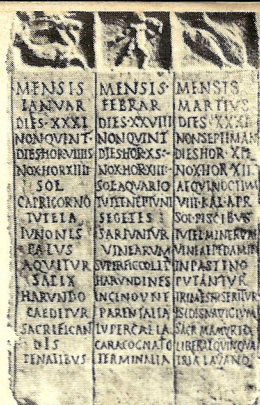 MENSIS
IANVAR
DIES·XXXI
NON·QVINT·
DIES·HOR·VIIII
NOX·HOR·XIIII
SOL
CAPRICORNO
TVTELA
IVNONIS
PALVS
AQVITVR
SALIX
HARVNDO
CAEDITVR
SACRIFICAN
DIS
PENATIBVS
MENSIS·
FEBRAR
DIES·XXVIII
NON·QVINT
DIES·HOR·XS
NOX·HOR·XIII
SOL·AQVARIO
TVTEL·NEPTVNI
SEGETES
SARIVNTVR
VINEARVM
SVPERFIC·COLIT
HARVNDINES
INCENDVNT
PARENTALIA
LVPERCALIA
CARA·COGNATIO
TERMINALIA
MENSIS
MARTIVS
DIES·XXXI
NON·SEPTIMAN
DIES·HOR·XII
NOX·HOR·XII
AEQVINOCTIVM
VIII·KAL·APR
SOL·PISCIBVS
TVTEL·MINERVAE
VINEAE·PEDAMIN
IN·PASTINO
PVTANTVR
TRIMESTR·SERITVR
ISIDIS·NAVIGIVM
SACR·MAMVRIO
LIBERAL·QVINQVA
TRIA·LAVATIO